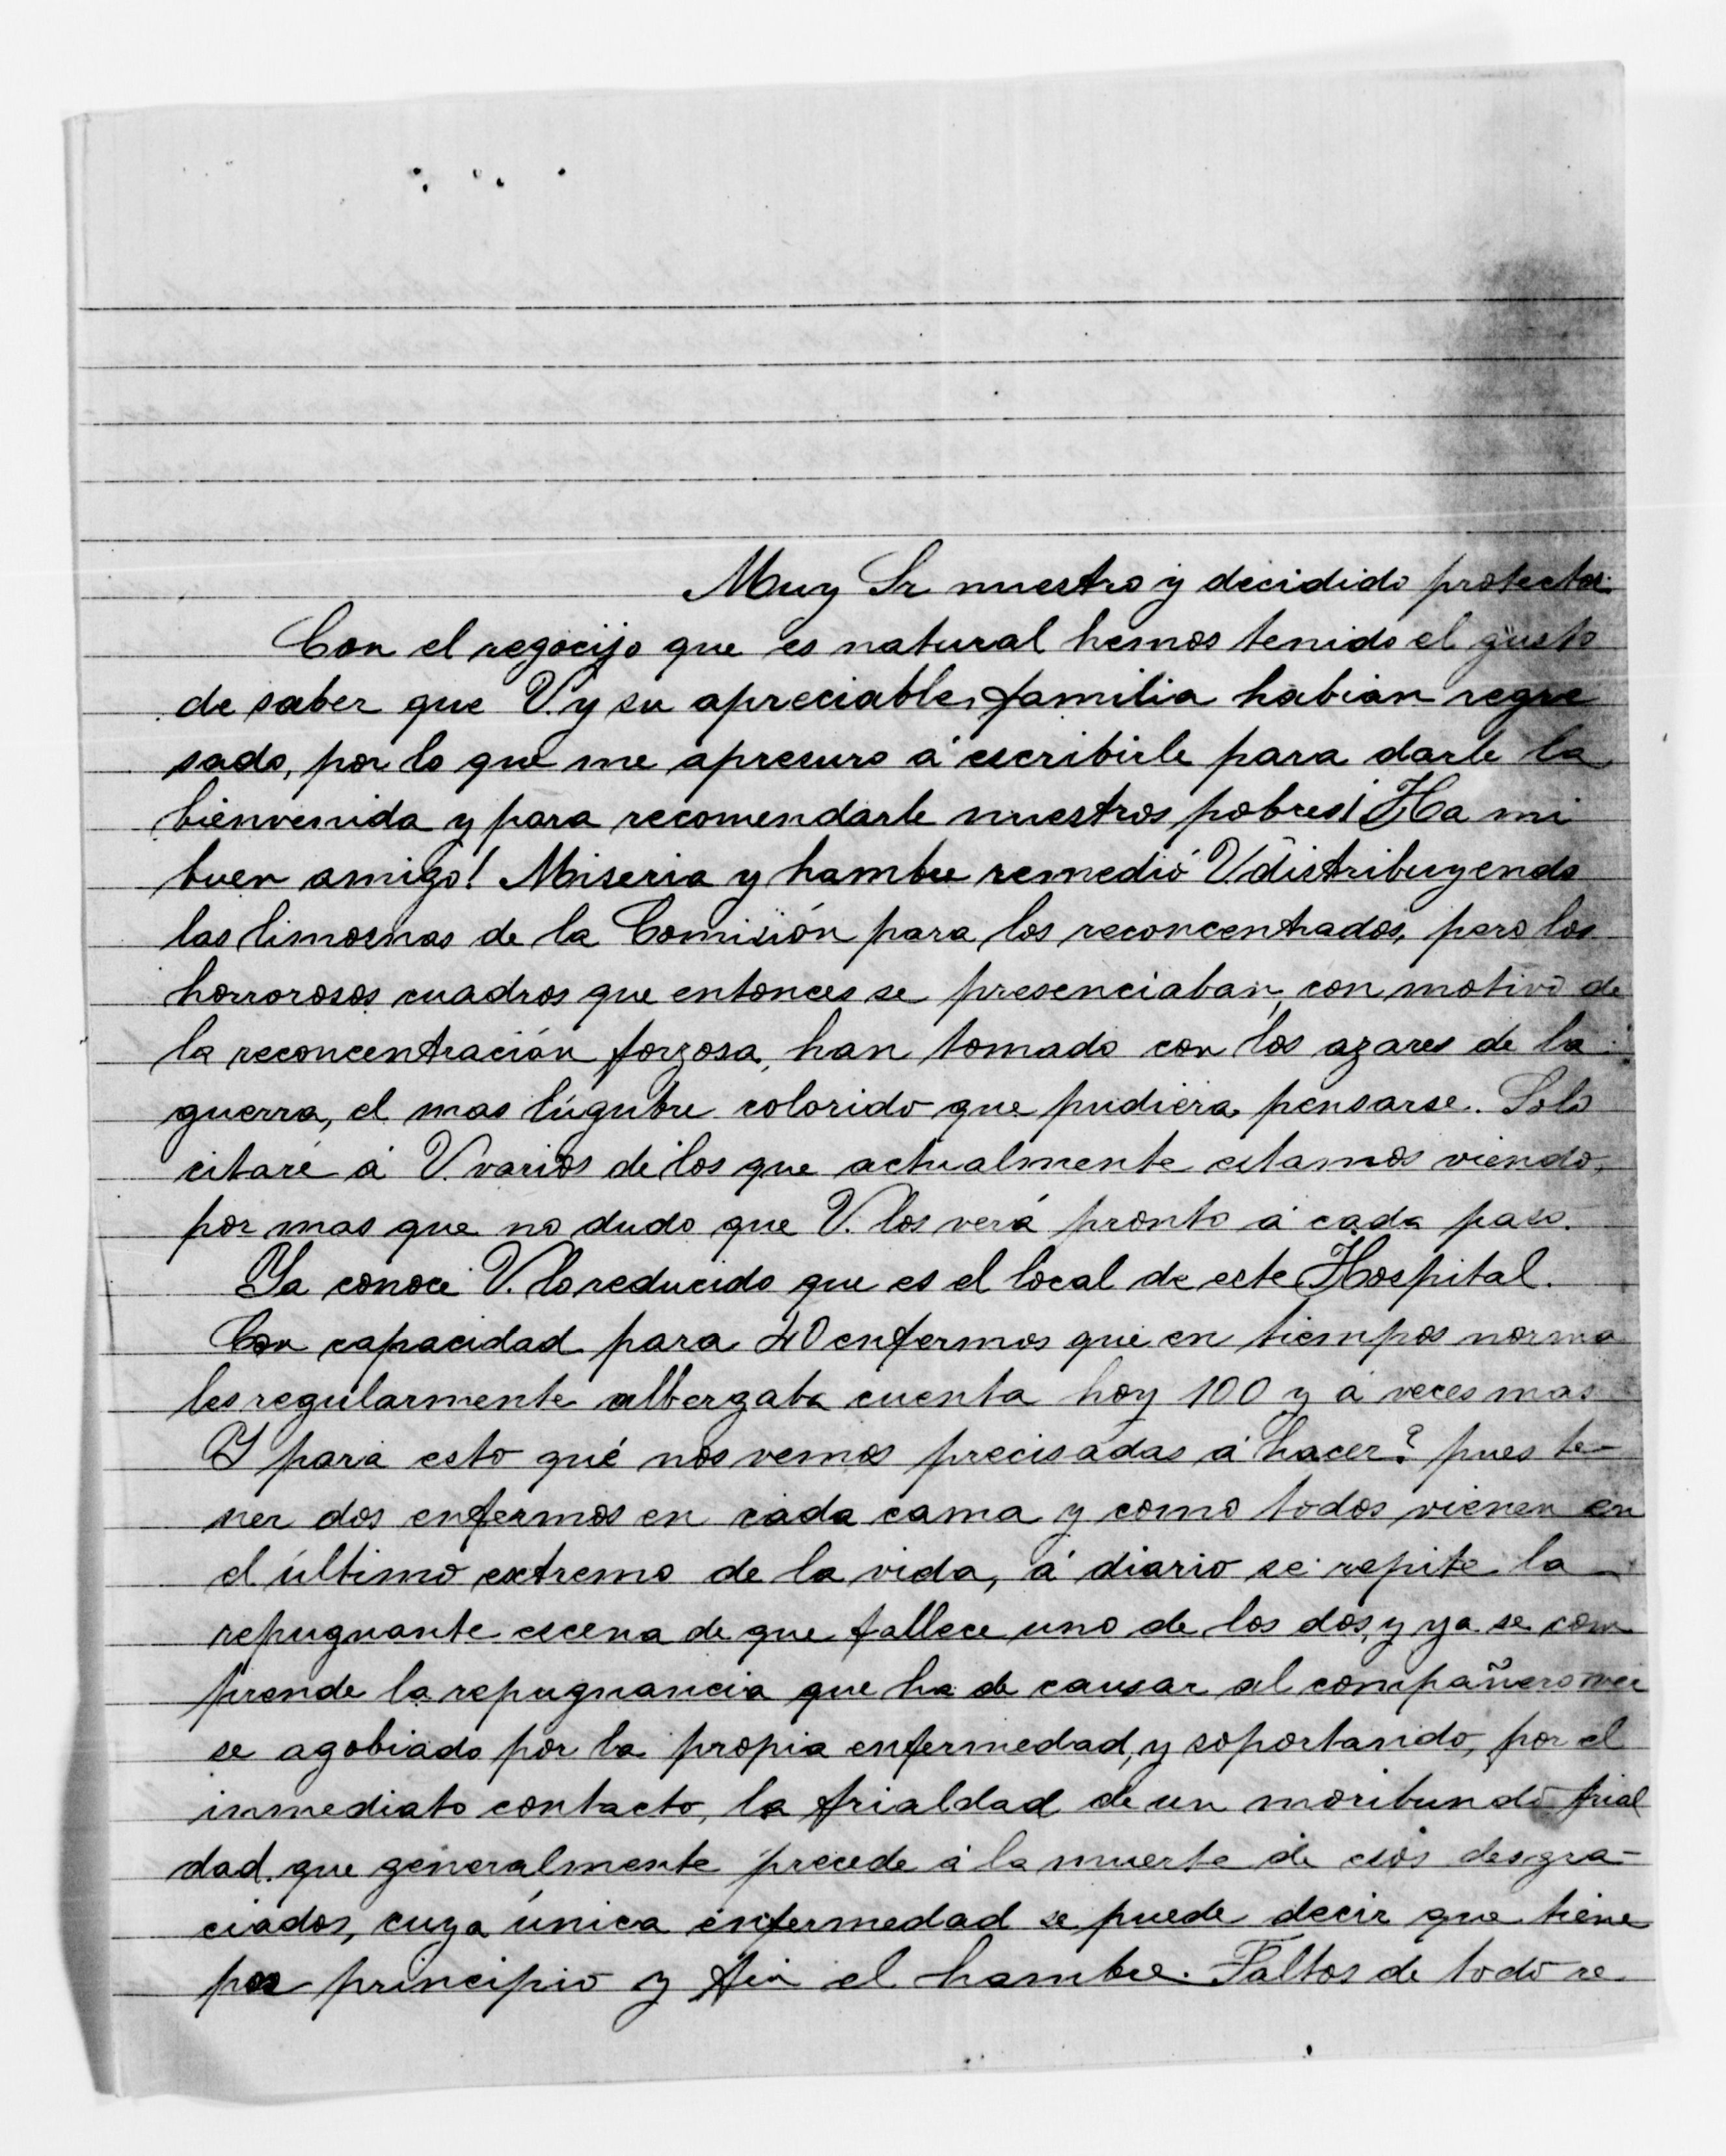 Muy Sr nuestro y decidido protector
Con el regocijo que es natural hemos tenido el gusto
de saber que V. y su apreciable familia habian regre
sado, por lo que me apresuro á escribirle para darle la
bienvenida y para recomendarle nuestros pobres! Ha mi
buen amigo! Miseria y hambre remedió V. distribuyendo
las limosnas de la Comisión para los reconcentrados, pero los
horrorosos cuadros que entonces se presenciaban, con motivo de
la reconcentración forzosa, han tomado con los azares de la
guerra, el mas lúgubre colorido que pudiera pensarse. Solo
citaré á V. varios de los que actualmente estamos viendo,
por mas que no dudo que V. los verá pronto á cada paso.
Ya conoce V. lo reducido que es el local de este Hospital.
Con capacidad para 40 enfermos que en tiempos norma
les regularmente albergaba cuenta hoy 100 y á veces mas
Y para esto qué nos vemos precisadas á hacer? pues te-
ner dos enfermos en cada cama y como todos vienen en
el último extremo de la vida, á diario se repite la
repugnante escena de que fallece uno de los dos, y ya se com
prende la repugnancia que ha de causar al compañero ver
se agobiado por la propia enfermedad, y soportando, por el
inmediato contacto, la frialdad de un moribundo frial
dad que generalmente precede á la muerte de esos desgra-
ciados, cuya única enfermedad se puede decir que tiene
por principio y fin el hambre. Faltos de todo re